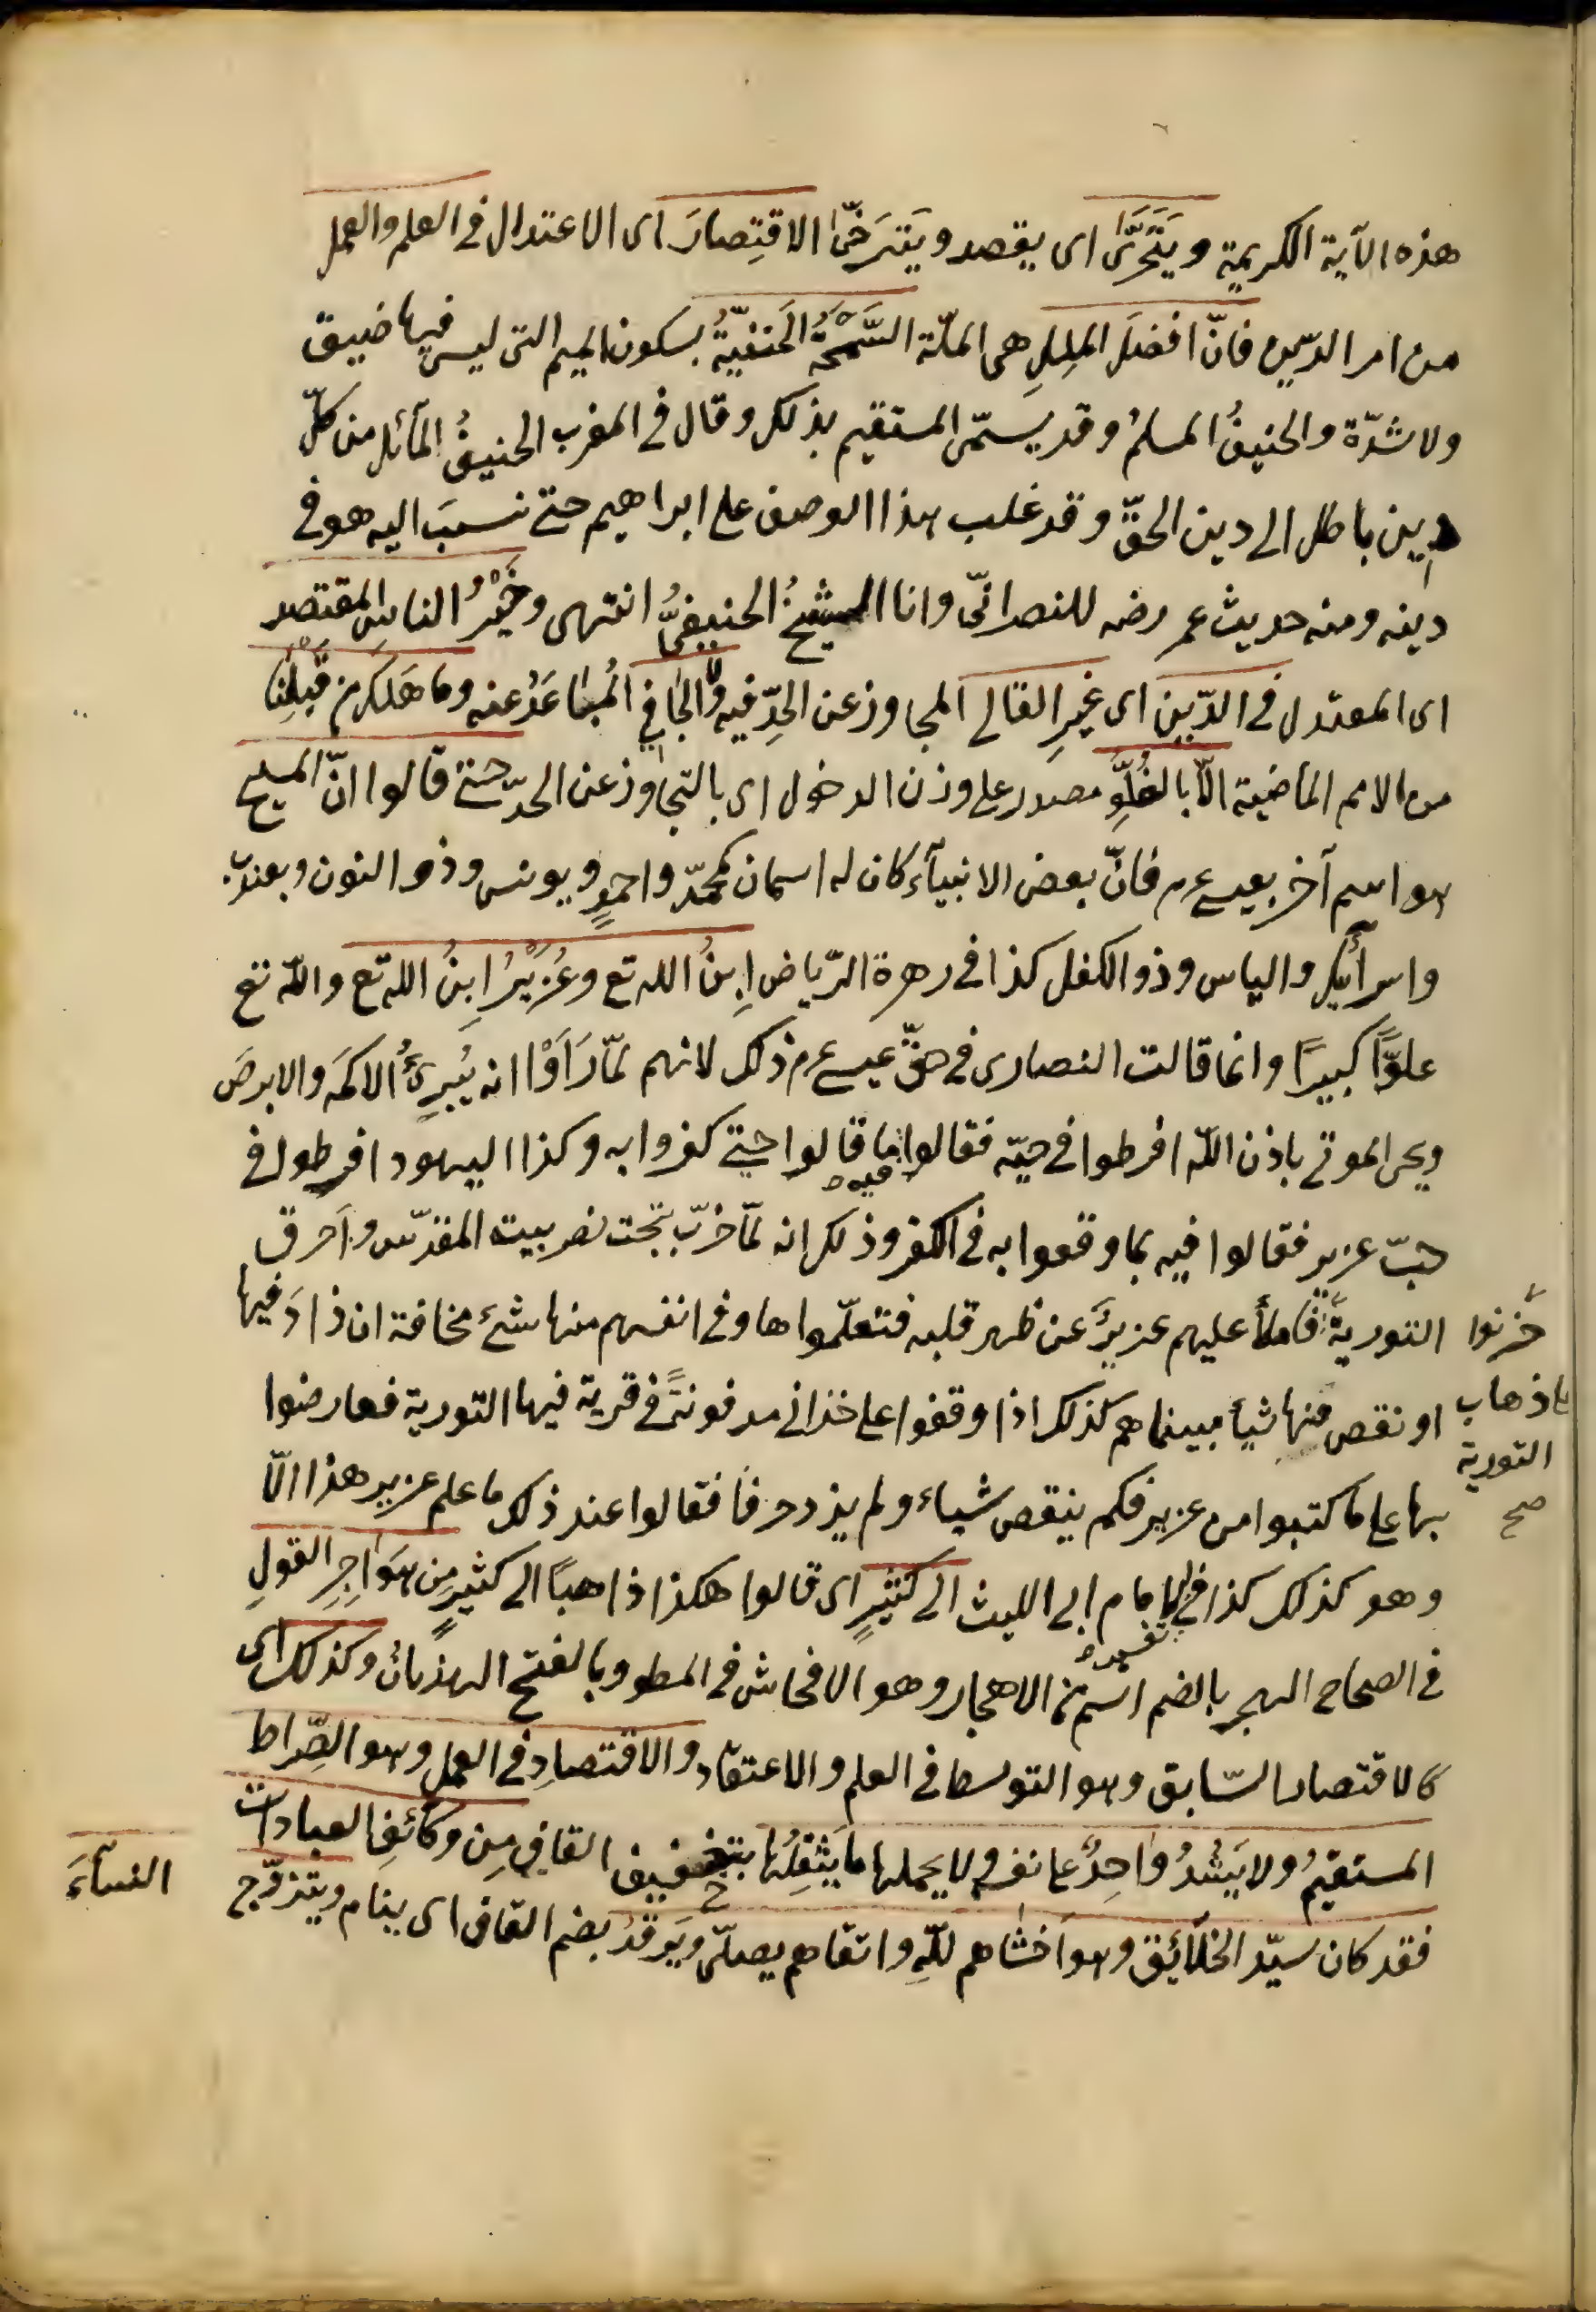 هذه الآية الكريمة ويَتَحَرَّى اى يقصد ويَتَرَخَّى الاقتِصادَ اى الاعتدال فى العلم والعمل
من امر الدّين فانّ افضلَ المِلَلِ هى الملّة السَّمْحَةُ الحَنفيّةُ بسكون الميم التى ليس فيها ضيق
ولا شدّة والحنيفُ المسلمُ وقد يسمّى المستقيم بذلك وقال فى المغرب الحنيفُ المآئل من كلّ
دين باطل الى دين الحقّ وقد غلب هذا الوصف على ابراهيم حتى نسب اليه هو فى
دينه ومنه حديث عمر رضه للنصرانىّ وانا الشيخُ الحنيفىُّ انتهى وخَيْرُ الناس المقتصد
اى المعتدل فى الدّين اى غيرِ الغالى المجاوز عن الحدّ فيه ولا الجافى المُتباعدُ عنه وما هَلَك من قَبْلِنا
من الامم الماضية الّا بالغُلوِّ مصدر على وزن الدخول اى بالتّجاوز عن الحدّ حتى قالوا انّ المسيح
هو اسم آخر بعيسى عم فانّ بعض الانبيآء كان له اسمان كمحمّد واحمد ويونس وذو النون ويعقوب
واسرآئيل والياس وذو الكفل كذا فى زهرة الرّياض اِبنُ الله تع وعُزَيْرُ ابنُ الله تع والله تع
علوّاً كبيرًا وانما قالت النصارى فى حقّ عيسى عم ذلك لانهم لمّا رَاَوْا انه يُبرِئُ الاكمَه والابرصَ
ويحى الموتى باذن الله افرطوا فى حبّه فقالوا فيه ما قالوا حتى كفروا به وكذا اليهود افرطوا فى
حبّ عزير فقالوا فيه بما وقعوا به فى الكفر وذلك انه لمّا خرّب بُخت نصر بيت المقدّس واَحرق
التورية فاملأ عليهم عزيرٌ عن ظهر قلبه فتعلّموا ها وفى انفسهم منها شئ مخافة ان زادَ فيها
حَزِنوا
على ذهاب
التورية
صح
او نقص منها شيأ فبينما هم كذلك اذا وقفوا على خذانى مدفونةً فى قرية فيها التورية فعارضوا
بها على ما كتبوا من عزير فكم ينقص شياء ولم يزد حرفا فقالوا عند ذلك ما علم عزير هذا الّا
وهو كذلك كذا فى تفسير الامام ابى الليث الى كثيرٍ اى قالوا هكذا ذاهبًا الى كثيرٍ مِن هَوَاجِرِ القولِ
فى الصحاح الهجر بالضم اسم من الاهجار وهو الافحاش فى المنطق وبالفتح الهذيان وكذلك اى
كالاقتصاد السّابق وهو التوسط فى العلم والاعتقاد والاقتصادِ فى العملِ وهو الصِّراط
المستقيمُ ولا يَشُدُ واحِدٌ على نفسه ولا يحملها ما يَثقِلُها بتخفيف القافِ مِن وَظَائفِ العبادات
فقد كان سيّد الخلآئق وهو اَخشاهم للهِ واتقاهم يصلّى ويَرقدُ بضم القاف اى ينام ويتزوّج
النسآءَ